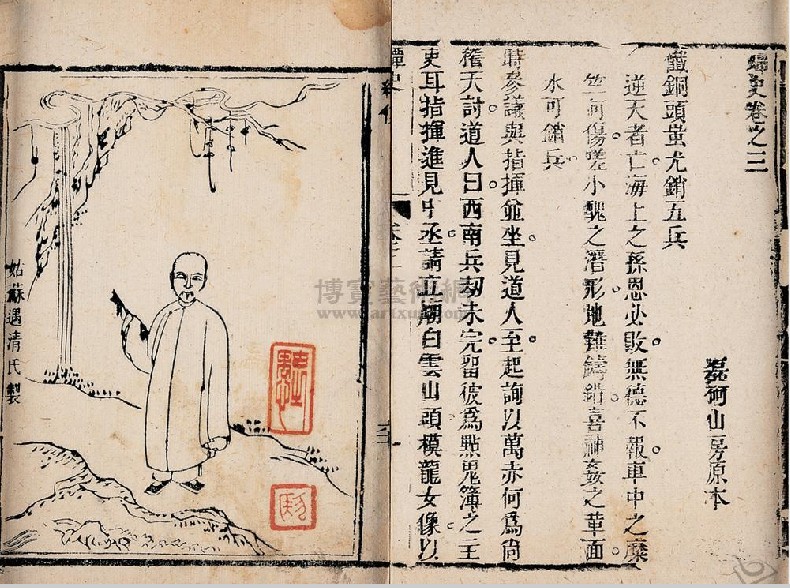 蟫史卷之三
磊砢山房原本
銅頭蚩尤銷五兵
逆天者亡海上之孫恩必敗無德不報車中之糜
竺何傷嗟小醜之潛形地雖鑄錯喜神姦之革面
水可銷兵
時參議與指揮並坐見道人至起詢以萬赤何為尚
稽天討道人曰西南兵劫未完留彼為點鬼簿之主
吏耳指揮進見中丞請立廟白雲山頭模龍女像以
蟫史
姑蘇遇清氏製
博寶藝術網
www.artxun.com